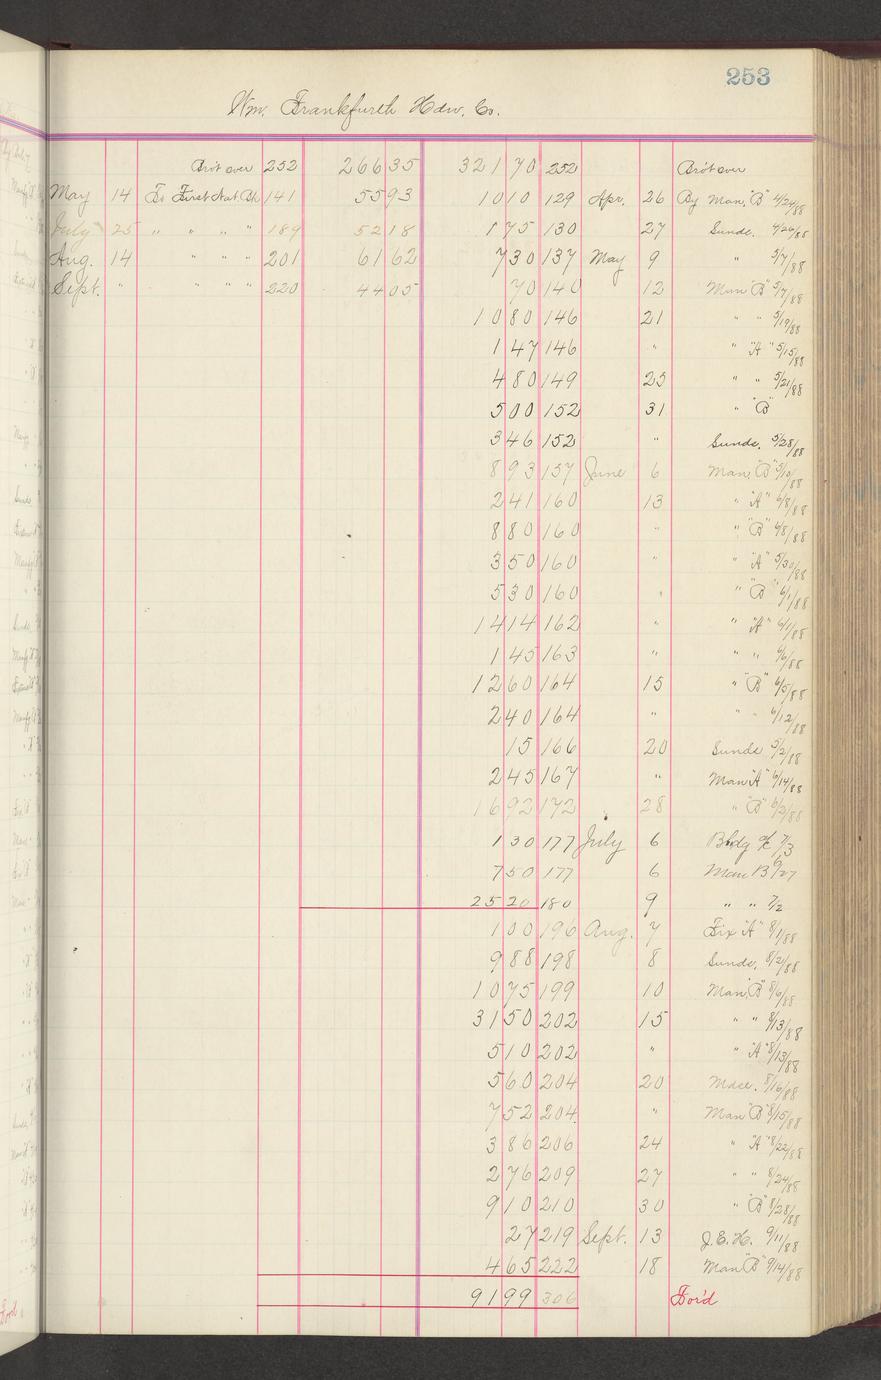 253
Wm. Frankfurth Hdw. Co.
Bro't over 252 266 35 321 70 252 Bro't over
May 14 To First Nat. Bk 141 55 93 10 10 129 Apr. 26 By Man. "B" 4/24/88
July 25 " " " " 189 52 18 1 75 130 27 Sunds. 4/26/88
Aug. 14 " " " 201 61 62 7 30 137 May 9 " 5/7/88
Sept. " " " " 220 44 05 70 140 12 Man "B" 5/7/88
10 80 146 21 " " 5/19/88
1 47 146 " " "A" 5/15/88
4 80 149 25 " " 5/21/88
5 00 152 31 " "B"
3 46 152 " Sunds. 5/28/88
8 93 157 June 6 Man. "B" 5/10/88
2 41 160 13 " "A" 6/8/88
8 80 160 " " "B" 6/8/88
3 50 160 " " "A" 5/30/88
5 30 160 " " "B" 6/1/88
14 14 162 " " "A" 6/1/88
1 45 163 " " " 6/6/88
12 60 164 15 " "B" 6/5/88
2 40 164 " " " 6/12/88
15 166 20 Sunds 5/2/88
2 45 167 " Man "A" 6/14/88
16 92 172 28 " "B" /88
1 30 177 July 6 Bldg a/c 7/3
7 50 177 6 Man B 6/27
25 20 180 9 " " 7/2
1 00 196 Aug. 7 Fix "A" 8/1/88
9 88 198 8 Sunds. 8/2/88
10 75 199 10 Man. "B" 8/6/88
31 50 202 15 " " 8/13/88
5 10 202 " " "A" 8/13/88
5 60 204 20 Mdse. 8/16/88
7 52 204 " Man "B" 8/15/88
3 86 206 24 " "A" 8/22/88
2 76 209 27 " " 8/24/88
9 10 210 30 " "B" 8/28/88
27 219 Sept. 13 J.E.H. 9/11/88
4 65 222 18 Man "B" 9/14/88
91 99 306 For'd